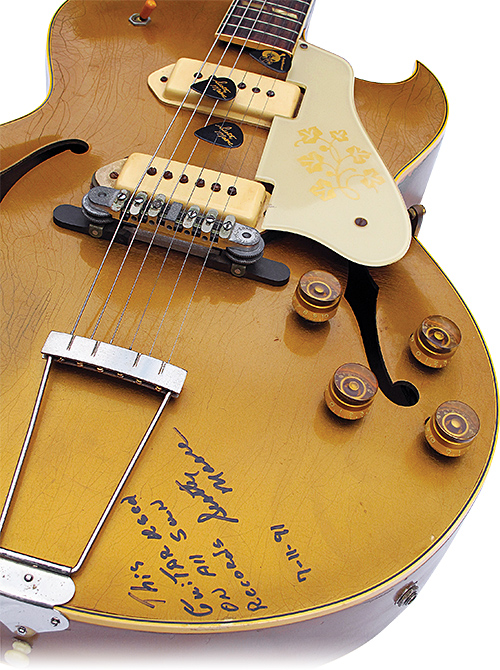 This
GuiTAR used
ON All Sun
Records
Scotty
Moore
7-11-91